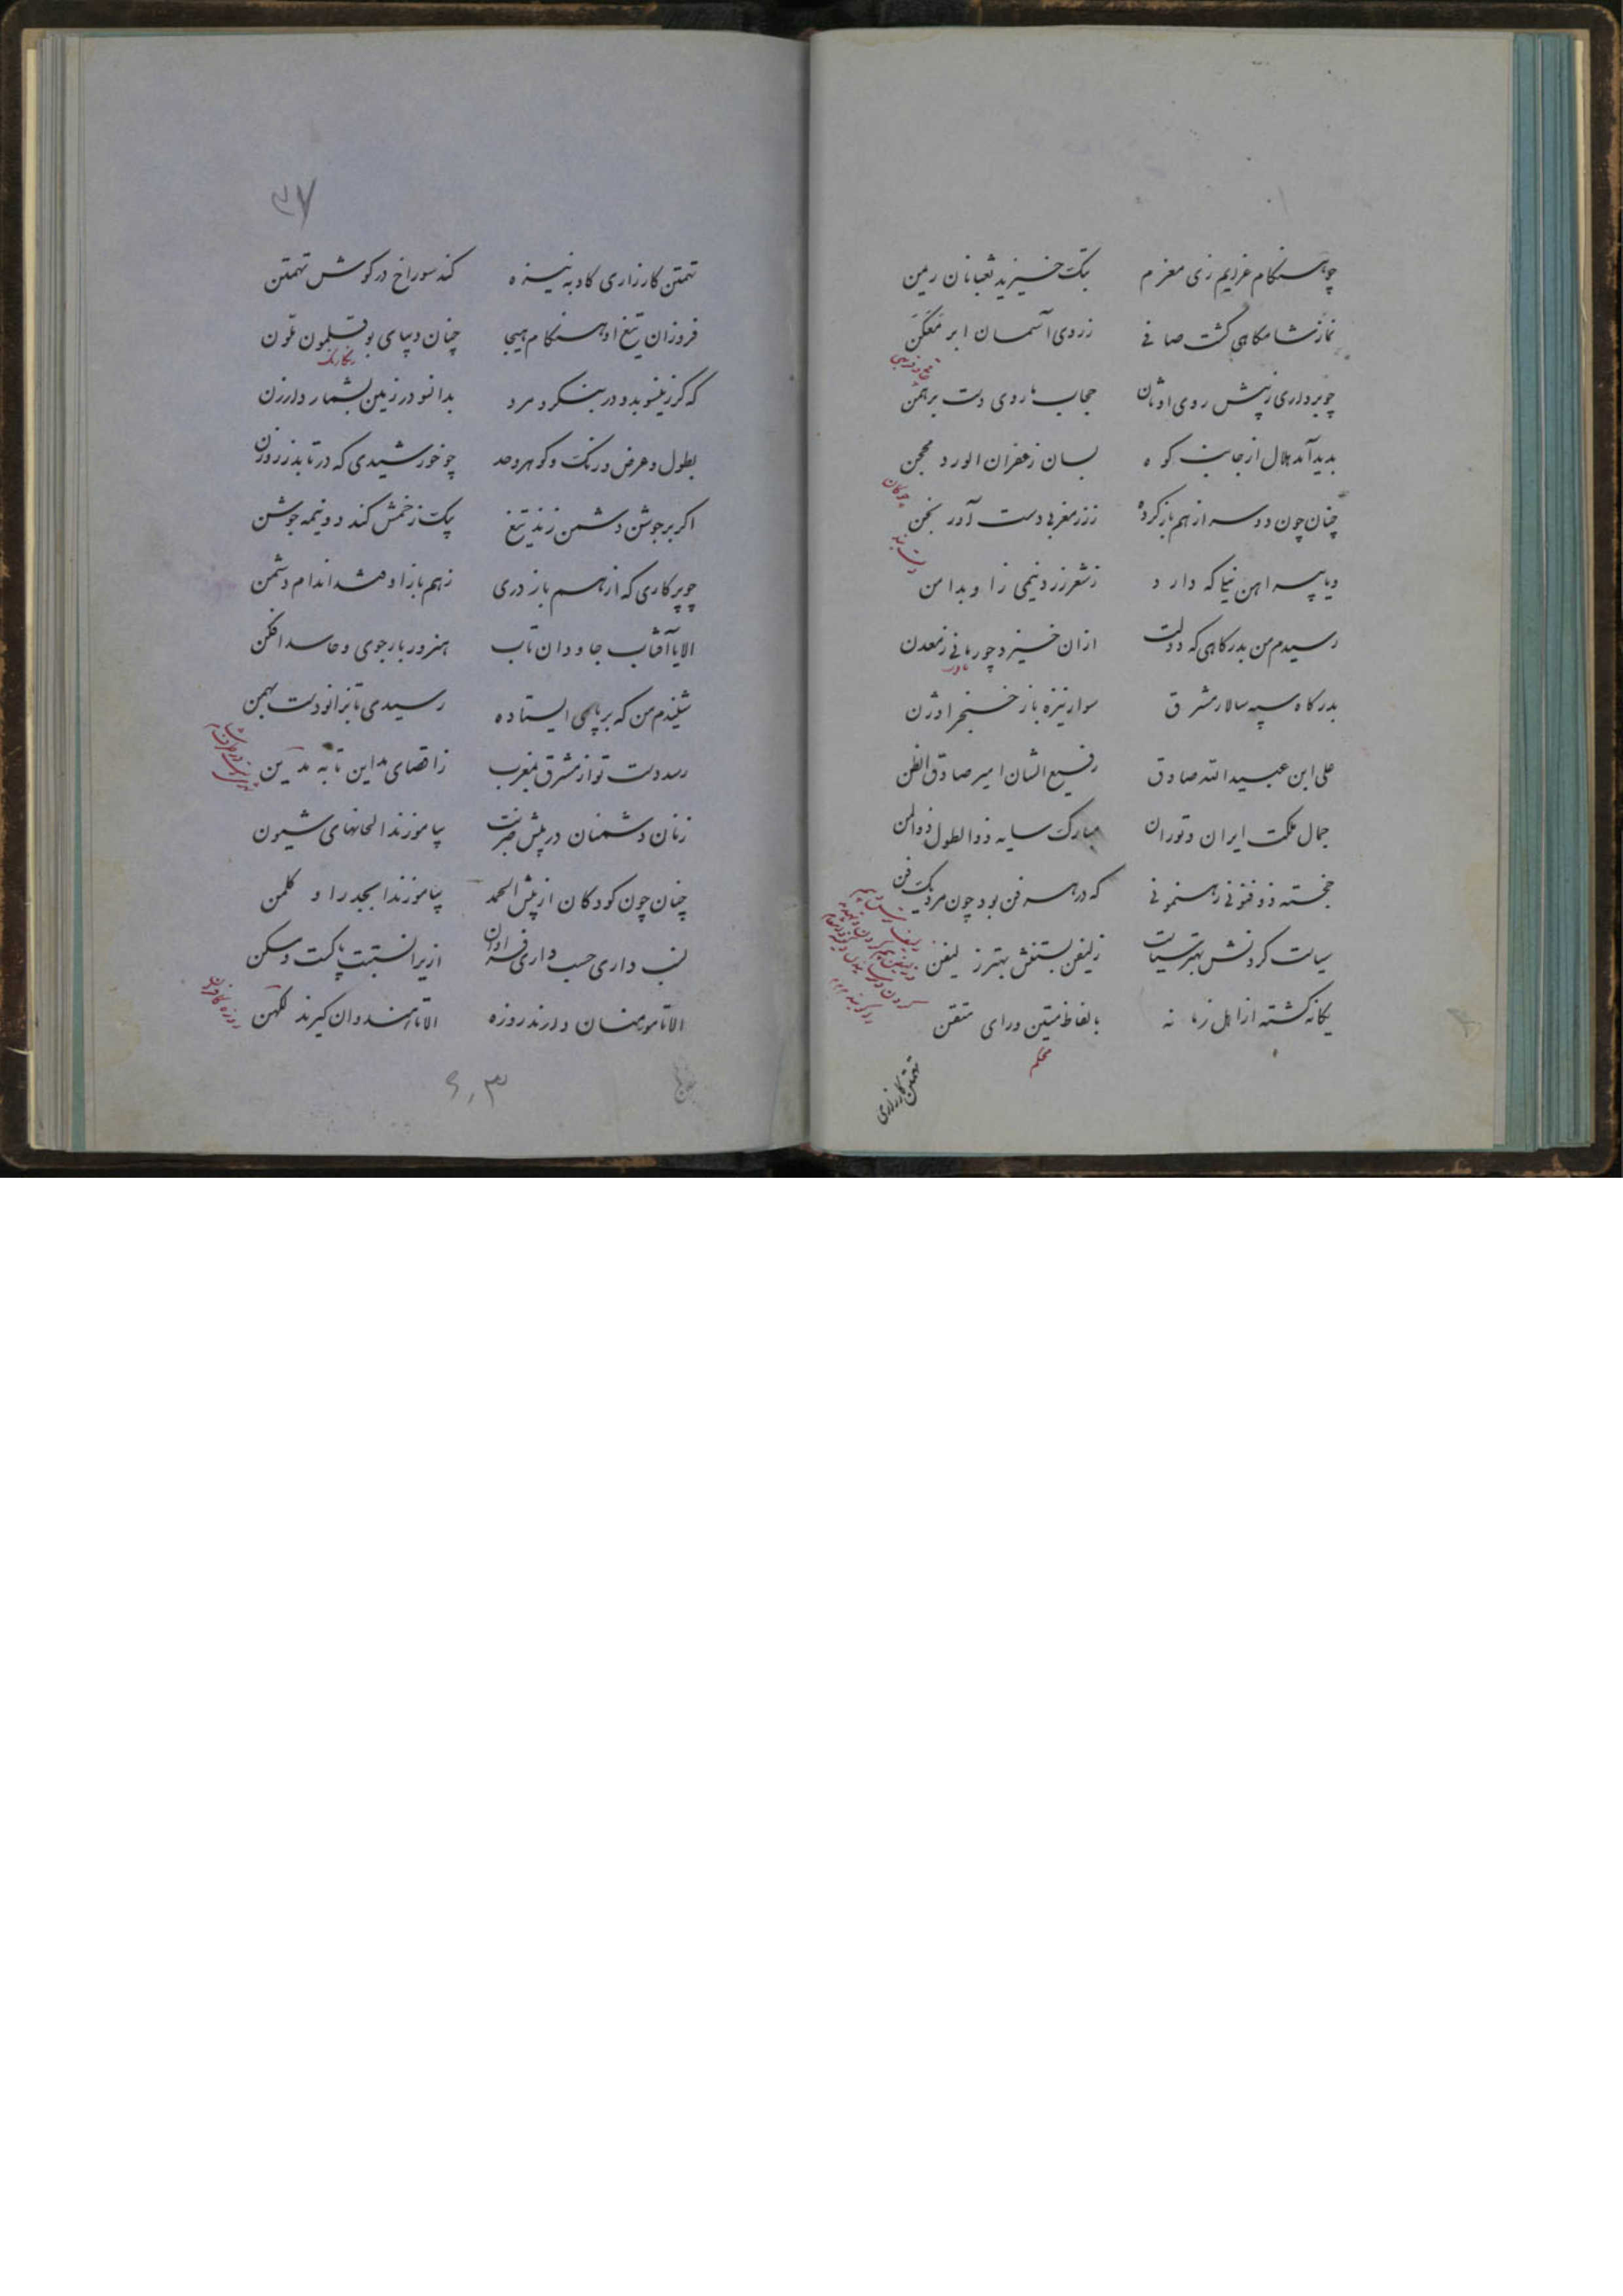 چو هنگام عزایم زی معزم بتک خیزند ثعبانان ریمن
نماز شامگاهی گشت صافی ز روی آسمان ابر معکن
چو برداری ز پیش روی اوثان حجاب ماردی دست برهمن
پدید آمد هلال از جانب کوه بسان زعفران الود محجن
چوگان
چنان چون دو سر از هم باز کرده ز زر مغربی دست آورنجن
دست بند
و یا پیراهن نیلی که دارد ز شعر زرد نیمی زه و بدامن
رسیدم من بدرگاهی که دولت ازان خیزد چو رمانی ز معدن
بدرگاه سپه سالار مشرق سوار نیزه باز خنجر اوژن
علی ابن عبیدالله صادق رفیع الشان امیر صادق الظن
جمال ملکت ایران و توران مبارک سایه ذوالطول ذوالمن
خجسته ذو فنونی رهنمونی که در هر فن بود چون مرد یک فن
سیاست کردنش بهتر سیاست زلیفن بستنش بهتر زلیفن
یگانه گشته از اهل زمانه بالفاظ متین و رای متقن
محکم
تهمتن کارزاری
۳۷
تهمتن کارزاری کاو به نیزه کند سوراخ در گوش تهمتن
فروزان تیغ او هنگام هیجا چنان دیبای بوقلمون ملون
رنکارنک
که گر زینسو بدو در بنگرد مرد بدانسو در زمین بشمارد ارزن
بطول و عرض و رنگ و گوهر و حد چو خورشیدی که در تابد ز روزن
اگر بر جوشن دشمن زند تیغ بیک زخمش کند دو نیمه جوشن
چو پرگاری که از هم باز دری ز هم باز اوفتد اندام دشمن
الا یا آفتاب جاودان تاب هنرور یارجوی و حاسد افکن
شنیدم من که بر پای ایستاده رسیدی تا بزانو دست بهمن
رسد دست تو از مشرق بمغرب ز اقصای مداین تا به مدین
زنان دشمنان در پیش ضربت بیاموزند الحانهای شیون
چنان چون کودکان از پیش الحمد بیاموزند ابجد را و کلمن
نسب داری حسب داری فراوان ازیرا نسبتت پاکست و مسکن
الا تا مومنان دارند روزه الا تا هندوان گیرند لکهن
روزه کافران